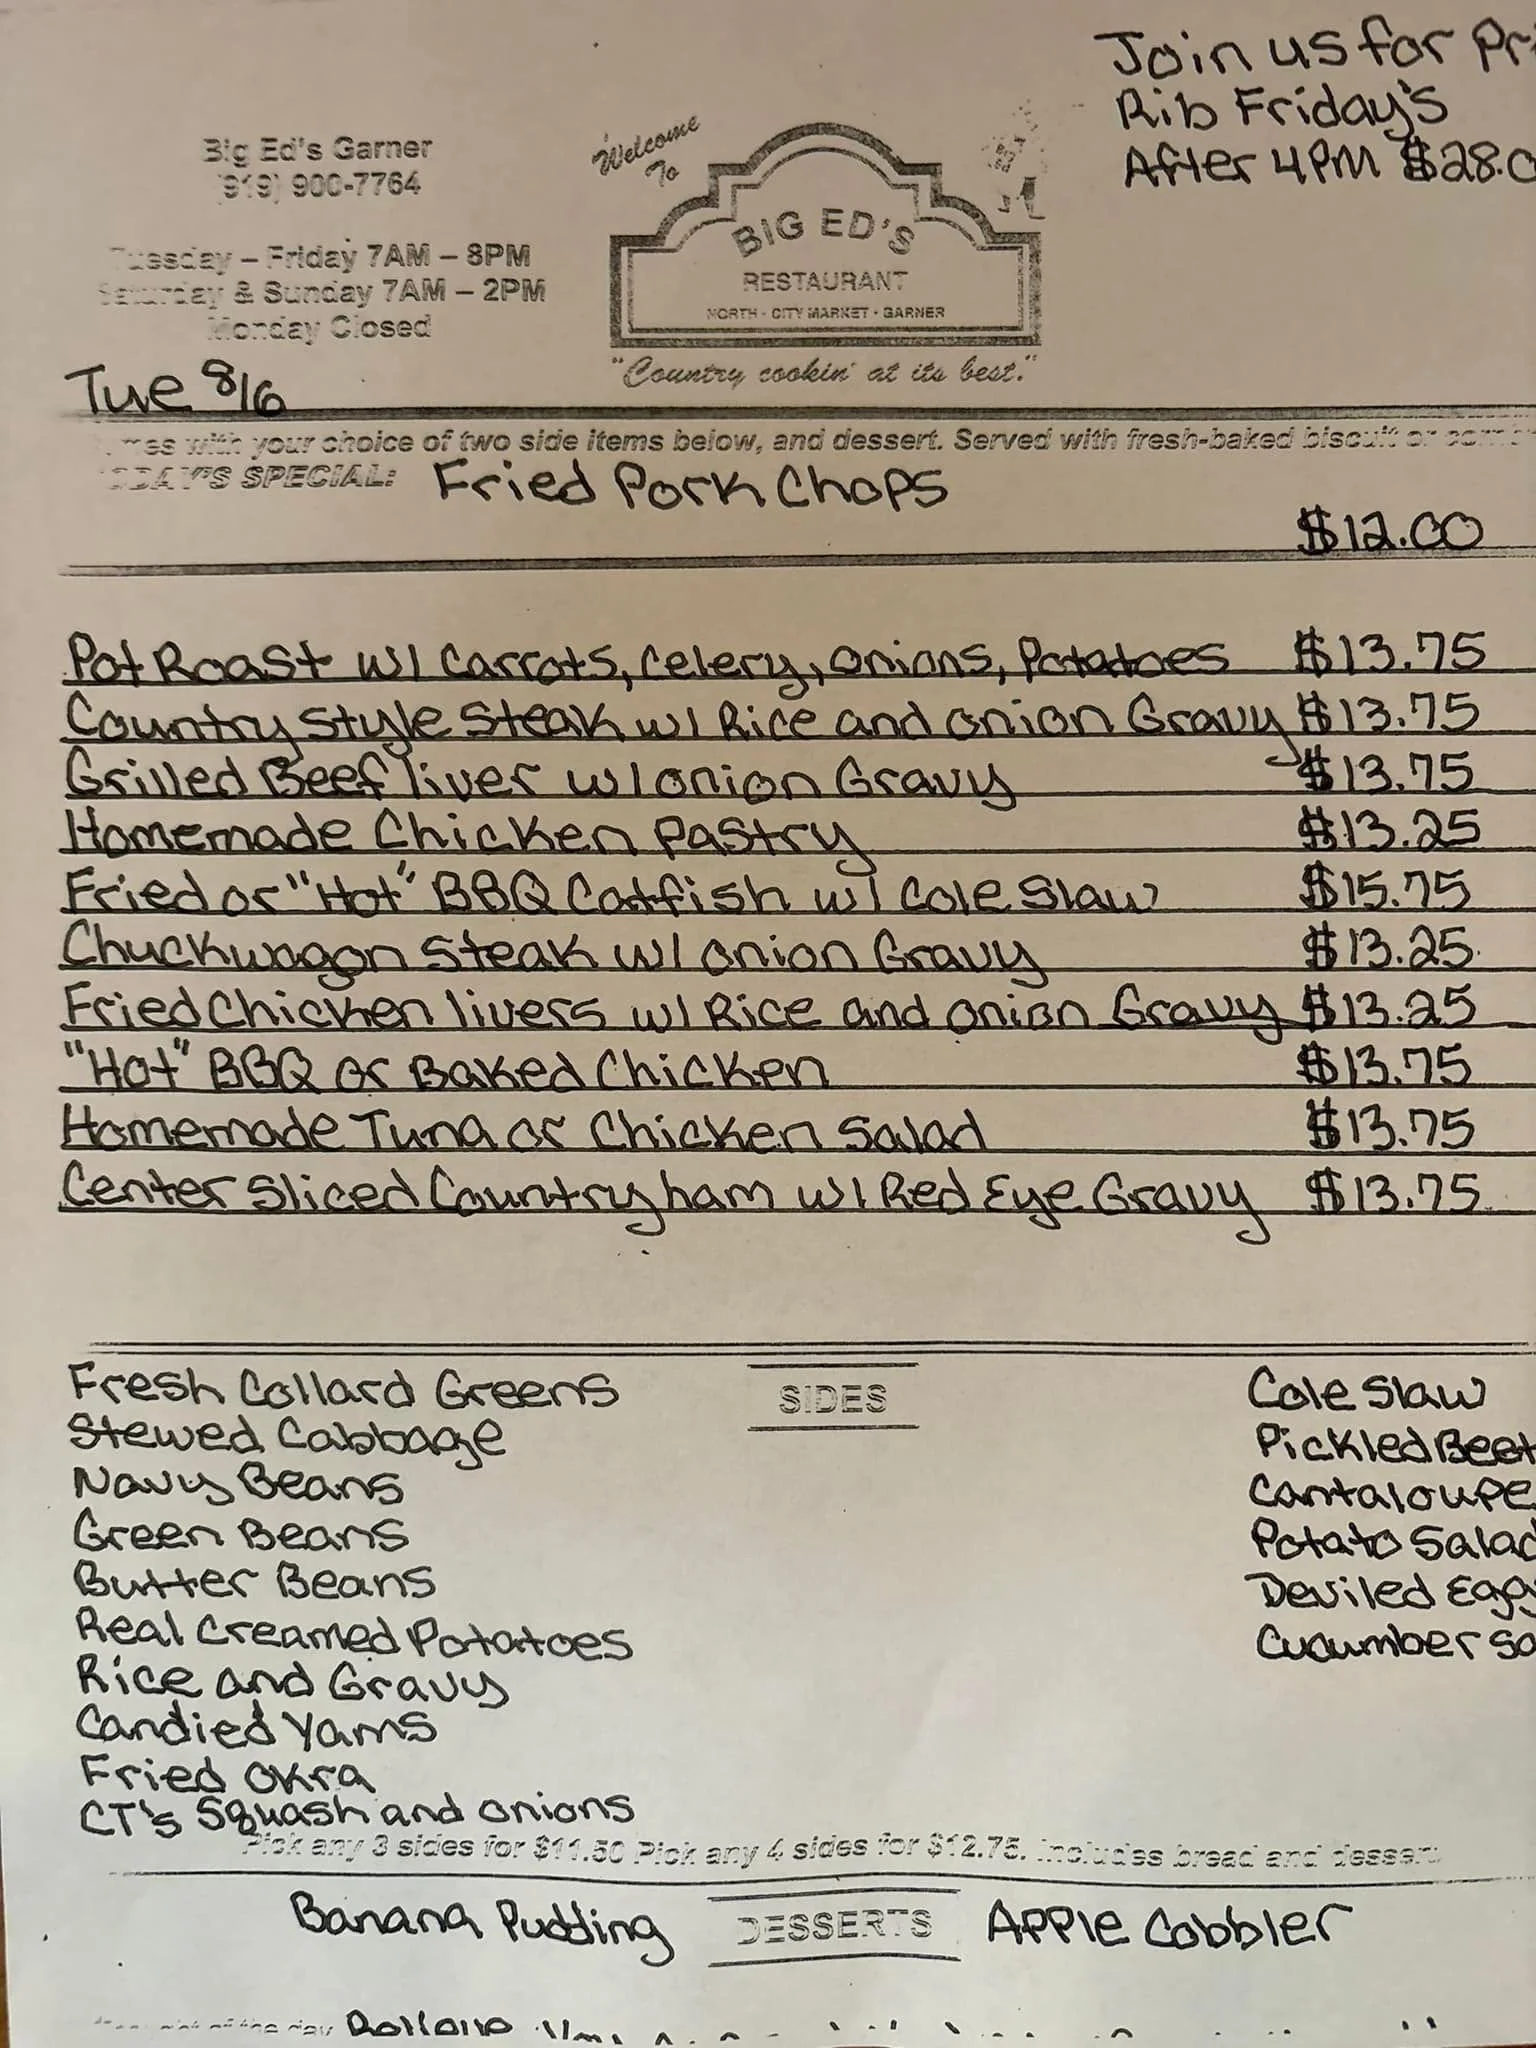 Join us for Pri
Rib Friday's
After 4PM $28.0
Big Ed's Garner
(919) 900-7764
Tuesday – Friday 7AM – 8PM
Saturday & Sunday 7AM – 2PM
Monday Closed
Welcome
To
BIG ED'S
RESTAURANT
NORTH · CITY MARKET · GARNER
"Country cookin' at its best."
Tue 8/6
mes with your choice of two side items below, and dessert. Served with fresh-baked biscuit or corn
ODAY'S SPECIAL: Fried Pork Chops
$12.00
Pot Roast w/ Carrots, Celery, Onions, Potatoes $13.75
Country Style Steak w/ Rice and Onion Gravy $13.75
Grilled Beef liver w/ onion Gravy $13.75
Homemade Chicken Pastry $13.25
Fried or "Hot" BBQ Catfish w/ Cole Slaw $15.75
Chuckwagon Steak w/ onion Gravy $13.25
Fried Chicken livers w/ Rice and onion Gravy $13.25
"Hot" BBQ or Baked Chicken $13.75
Homemade Tuna or Chicken Salad $13.75
Center Sliced Country ham w/ Red Eye Gravy $13.75
SIDES
Fresh Collard Greens
Stewed Cabbage
Navy Beans
Green Beans
Butter Beans
Real Creamed Potatoes
Rice and Gravy
Candied Yams
Fried Okra
CT's Squash and onions
Cole Slaw
Pickled Beet
Cantaloupe
Potato Salad
Deviled Egg
Cucumber Sa
Pick any 3 sides for $11.50 Pick any 4 sides for $12.75. Includes bread and dessert.
Banana Pudding DESSERTS Apple Cobbler
of the day